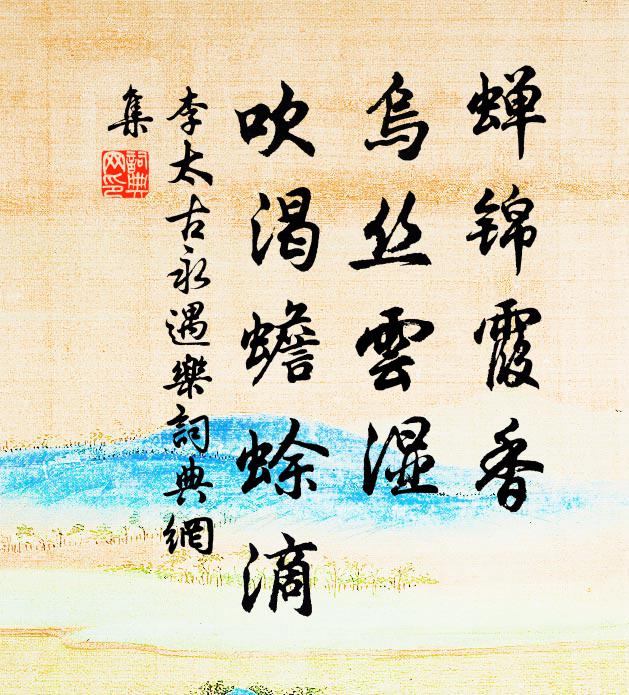 蝉锦霞香
乌丝雲湿
吹渴蟾蜍滴
李太古永遇樂詞典網
集
詞典
网印